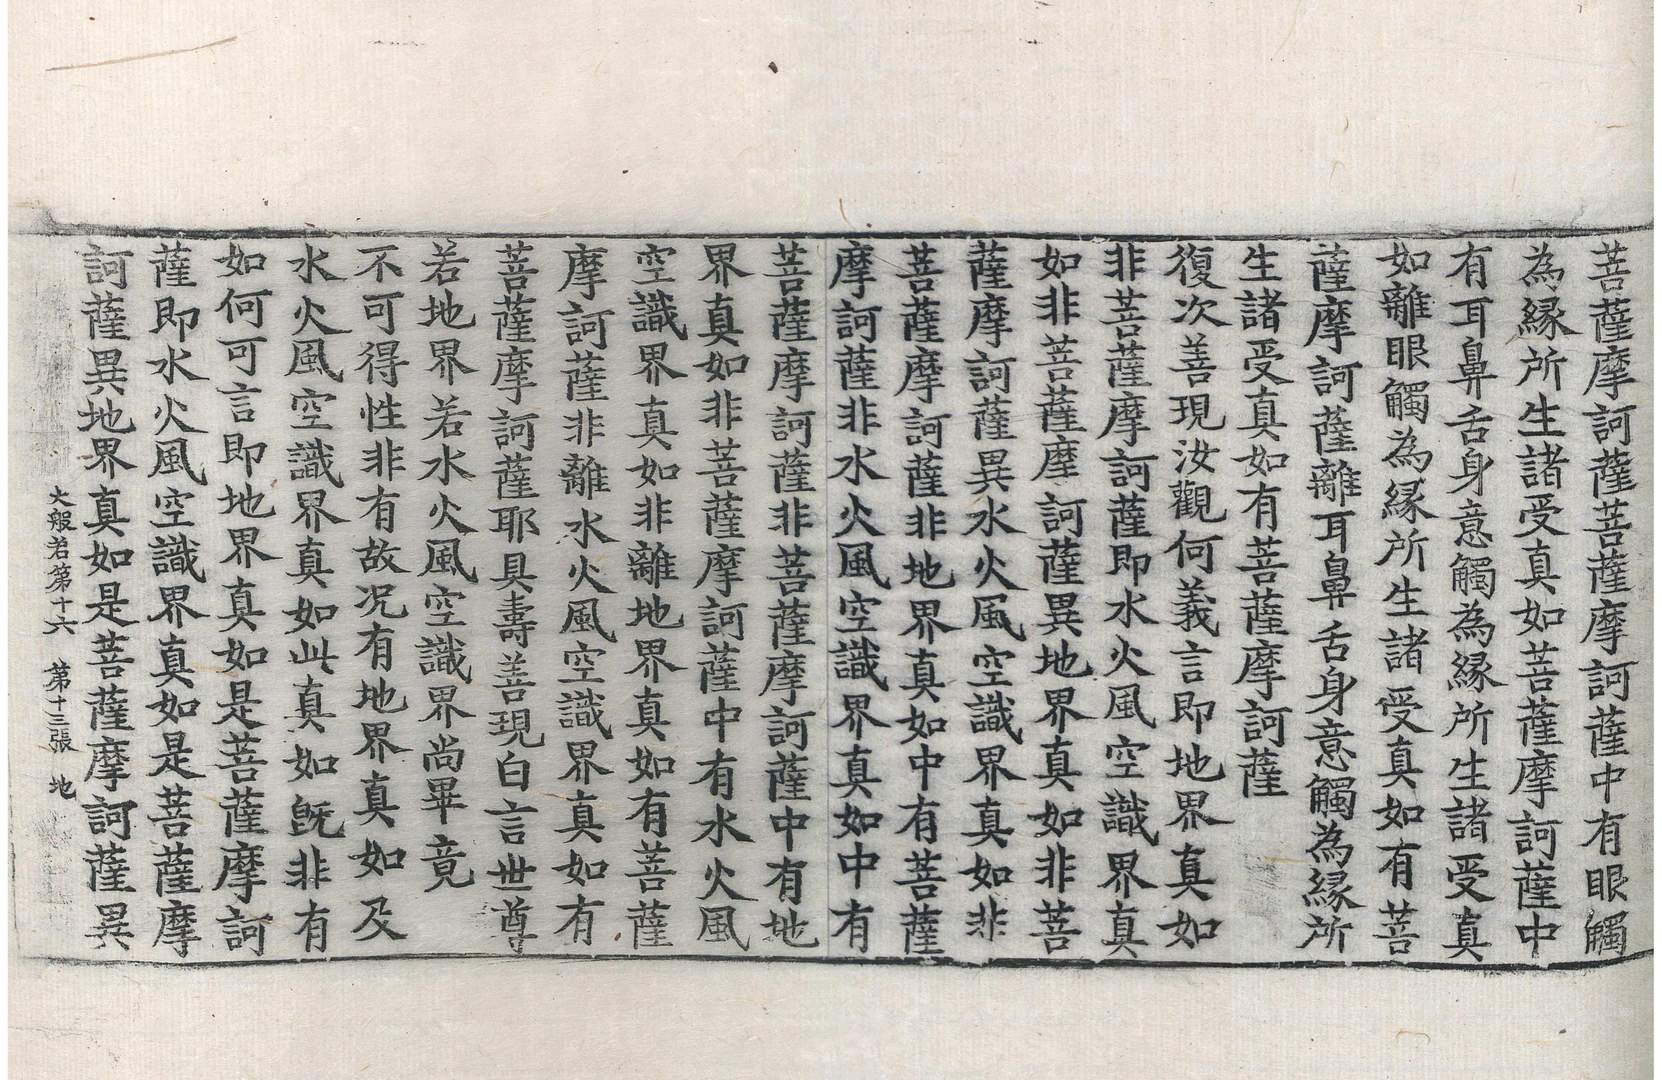 菩薩摩訶薩菩薩摩訶薩中有眼觸
為縁所生諸受真如菩薩摩訶薩中
有耳鼻舌身意觸為縁所生諸受真
如離眼觸為縁所生諸受真如有菩
薩摩訶薩離耳鼻舌身意觸為縁所
生諸受真如有菩薩摩訶薩
復次善現汝觀何義言即地界真如
非菩薩摩訶薩即水火風空識界真
如非菩薩摩訶薩異地界真如非菩
薩摩訶薩異水火風空識界真如非
菩薩摩訶薩非地界真如中有菩薩
摩訶薩非水火風空識界真如中有
菩薩摩訶薩非菩薩摩訶薩中有地
界真如非菩薩摩訶薩中有水火風
空識界真如非離地界真如有菩薩
摩訶薩非離水火風空識界真如有
菩薩摩訶薩耶具壽善現白言世尊
若地界若水火風空識界尚畢竟
不可得性非有故況有地界真如及
水火風空識界真如此真如既非有
如何可言即地界真如是菩薩摩訶
薩即水火風空識界真如是菩薩摩
訶薩異地界真如是菩薩摩訶薩異
大般若第十六 第十三張 地